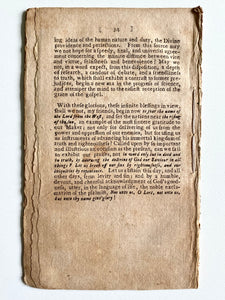 34
ing ideas of the human nature and duty, the Divine
providence and perfections. From this source may
we not hope for a speedy, final, and universal apprehending
the minute distance between vice
and virtue, falsehood and benevolence? May we
not, in a word expect, from this disposition, a spirit
of research, a candour of debate, and a friendliness
to truth, which shall exhibit a contrast to former prejudices,
retard us in the progress of science,
and attemper the mind to the easiest reception of the
grace of the gospel.
With these glorious, these infinite blessings in view,
shall we not, my friends, begin now to fear the name of
the Lord from the West, and set the nations near the rising
of the sun, an example of the most sincere gratitude to
our Maker; not only for delivering us from the
power and oppression of our enemies, but for making us
as instruments of advancing his immortal kingdom of
truth and righteousness! Called upon by so important
and illustrious an occasion as the present, can we fail
to exhibit our praises, not in word only but in deed and
in truth, by adorning the doctrine of God our Saviour in all
things? Let us break off our sins by righteousness, and our
iniquities by repentance. Let us sustain this day, and all
other days, from levity and sin; and by a humble,
devout, and chearful acknowledgment of God's goodness,
utter, in the language of life, the noble exclamation
of the psalmist, Not unto us, O Lord, not unto
us, but unto thy name give glory!